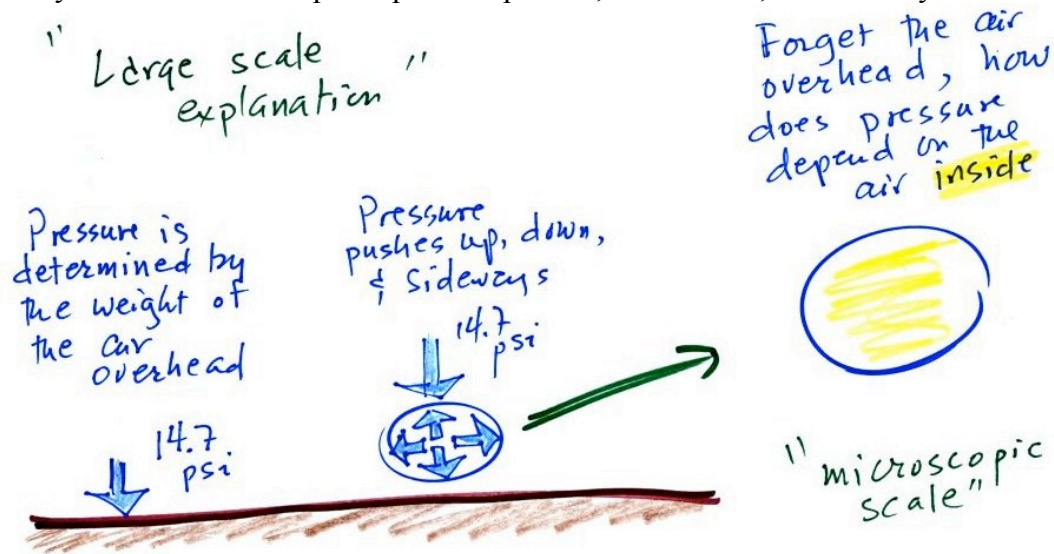 "Large scale
explanation"
Forget the air
overhead, how
does pressure
depend on the
air inside
Pressure is
determined by
the weight of
the air
overhead
14.7
psi
Pressure
pushes up, down,
& sideways
14.7
psi
"microscopic
scale"